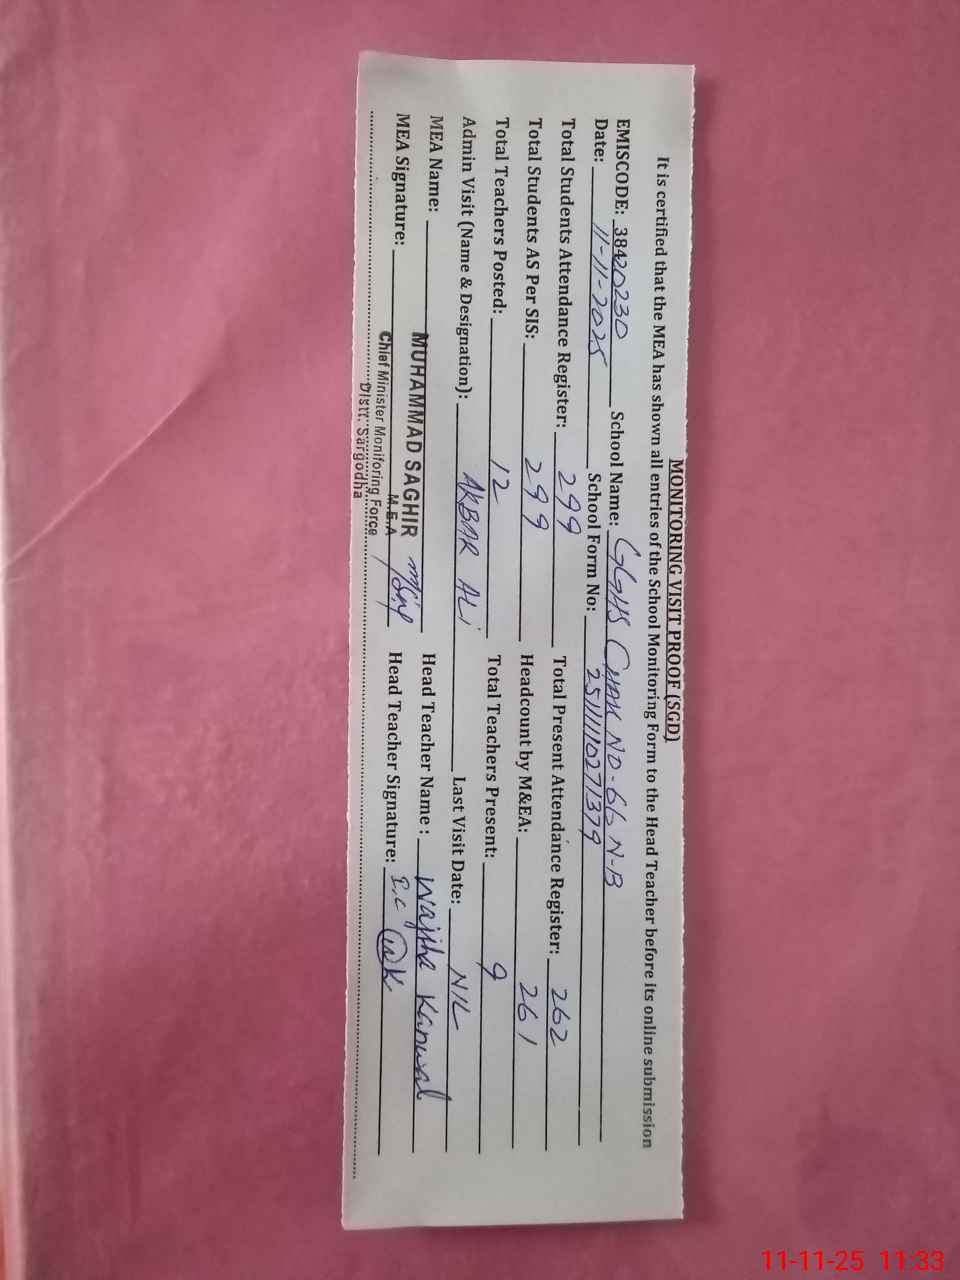 MONITORING VISIT PROOF (SGD)
It is certified that the MEA has shown all entries of the School Monitoring Form to the Head Teacher before its online submission
EMISCODE: 38420230 School Name: GGHS CHAK NO-66 N-B
Date: 11-11-2025 School Form No: 2511111027 1379
Total Students Attendance Register: 299 Total Present Attendance Register: 262
Total Students AS Per SIS: 299 Headcount by M&EA: 261
Total Teachers Posted: 12 Total Teachers Present: 9
Admin Visit (Name & Designation): AKBAR ALi Last Visit Date: NIL
MEA Name: MUHAMMAD SAGHIR Head Teacher Name : Wajiha Kanwal
MEA Signature: M.E.A Head Teacher Signature: I.C WK
Chief Minister Monitoring Force
Distt: Sargodha
11-11-25 11:33